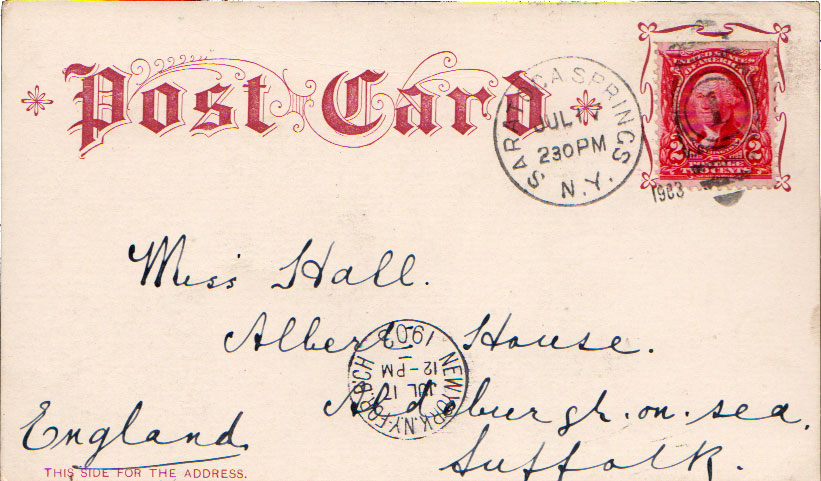 Post Card
SARATOGA SPRINGS
JUL
230PM
N.Y.
1903
UNITED STATES
OF AMERICA
2 2
POSTAGE
TWO CENTS
Miss Hall.
Albert House.
Aldeburgh.on.sea.
Suffolk.
England
1903
12-PM
JUL 17
NEW YORK, N.Y. FOR. BCH
THIS SIDE FOR THE ADDRESS.